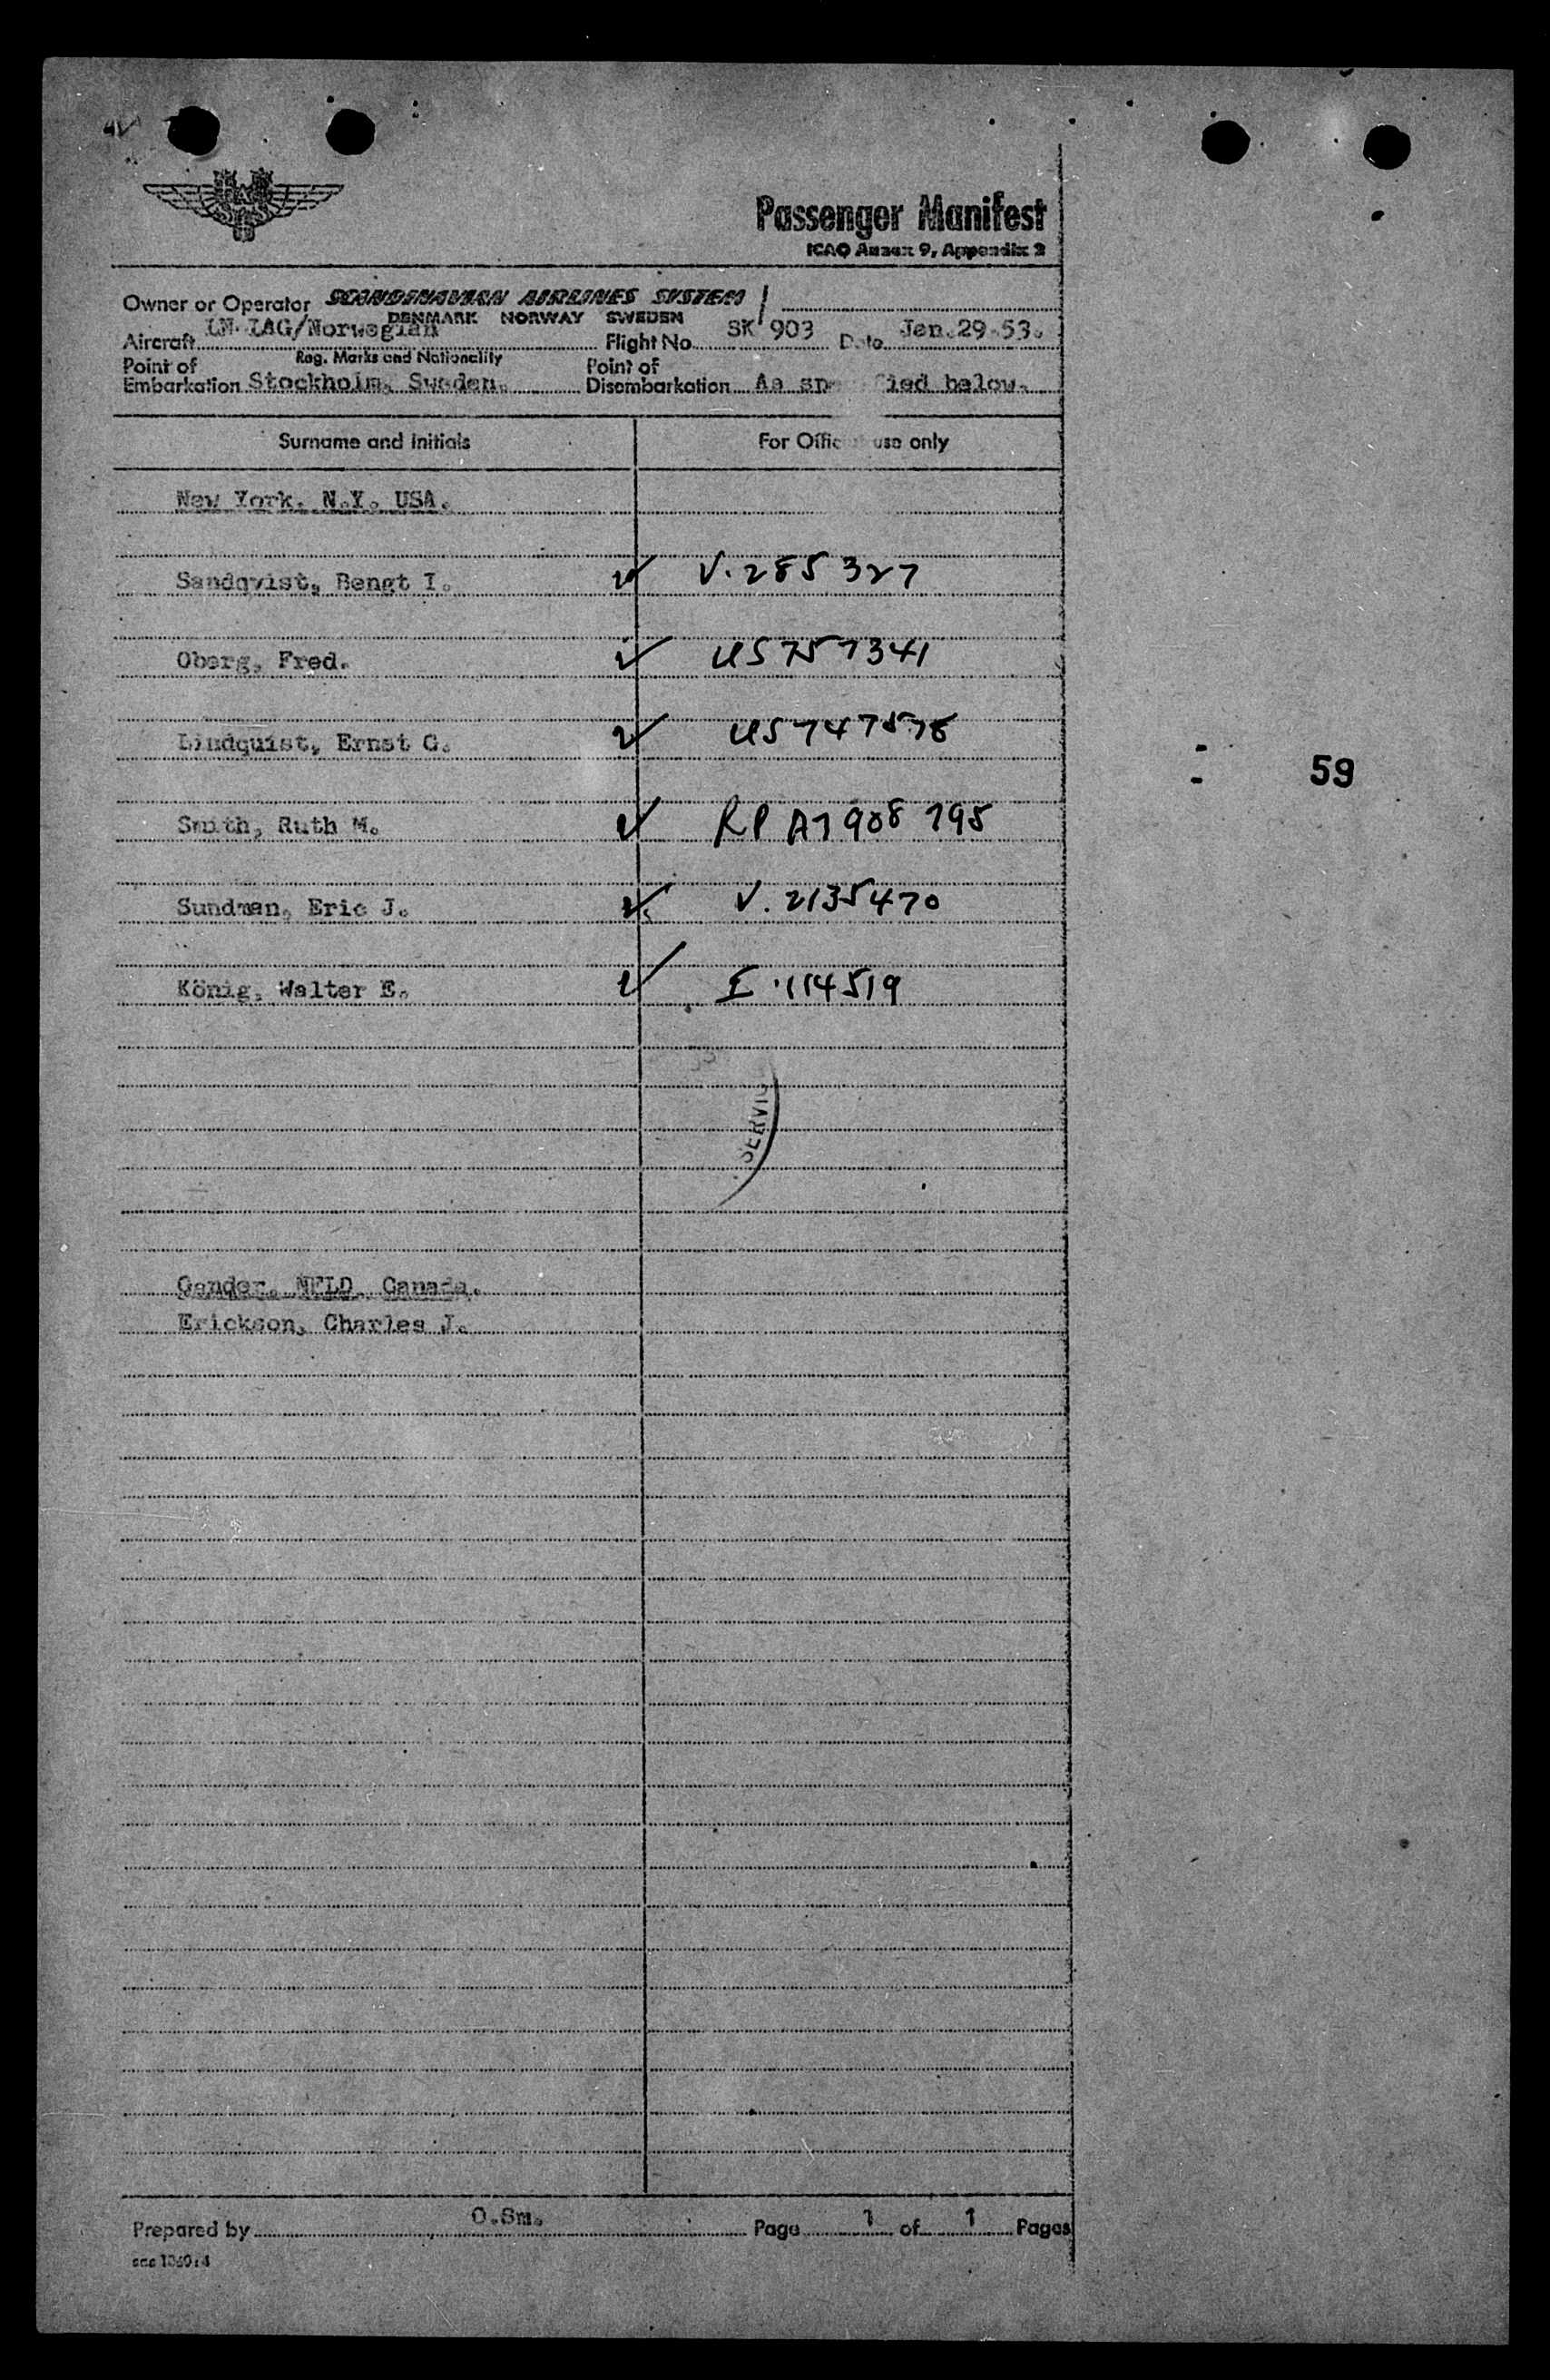 Passenger Manifest
ICAO Annex 9, Appendix 2
Owner or Operator SCANDINAVIAN AIRLINES SYSTEM
DENMARK NORWAY SWEDEN
Aircraft LN-LAG/Norwegian Flight No. SK 903 Date Jan.29-53.
Reg. Marks and Nationality
Point of Embarkation Stockholm, Sweden. Point of Disembarkation As specified below.
Surname and Initials For Official use only
New York, N.Y. USA.
Sandqvist, Bengt I. V.285327
Oberg, Fred. US757341
Lindquist, Ernst G. US747578
59
Smith, Ruth M. RP A7908795
Sundman, Eric J. V.2135470
König, Walter E. I.114519
SERVIC
Gander, NFLD, Canada.
Erickson, Charles J.
Prepared by O.Sm. Page 1 of 1 Pages